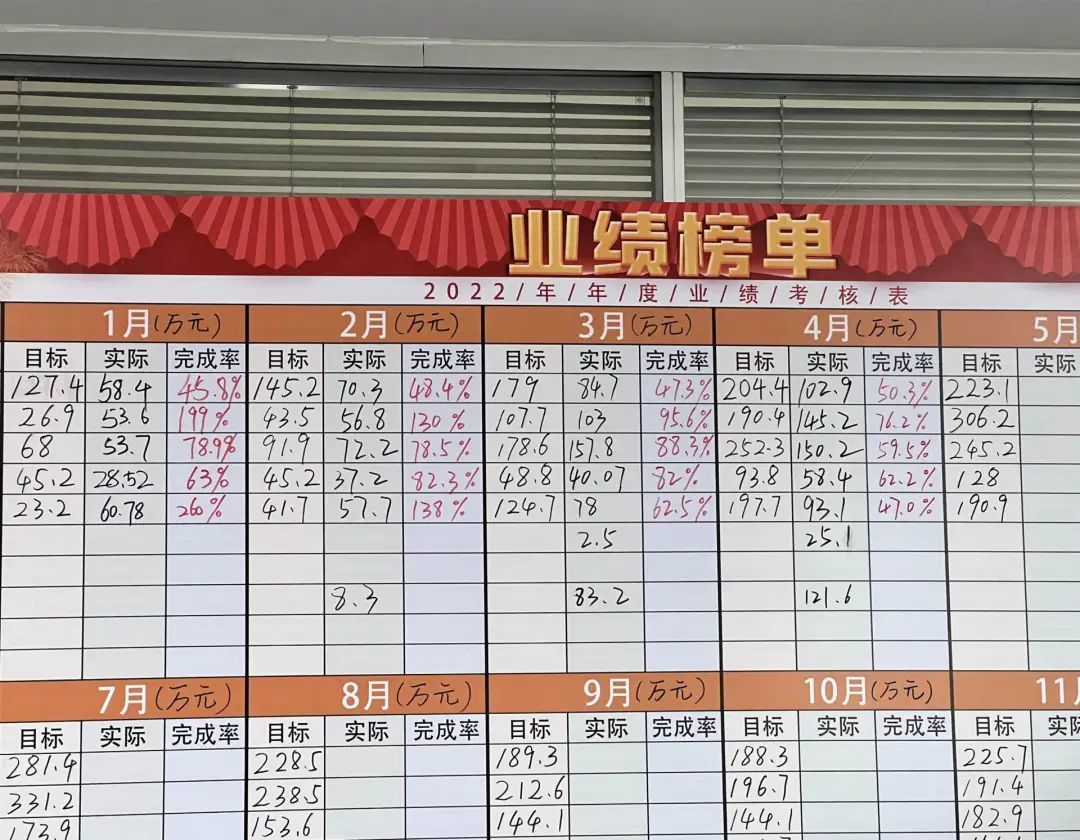 业绩榜单
2022/年/年/度/业/绩/考/核/表
1月(万元) 2月(万元) 3月(万元) 4月(万元) 5月
目标 实际 完成率 目标 实际 完成率 目标 实际 完成率 目标 实际 完成率 目标 实际
127.4 58.4 45.8% 145.2 70.3 48.4% 179 84.7 47.3% 204.4 102.9 50.3% 223.1
26.9 53.6 199% 43.5 56.8 130% 107.7 103 95.6% 190.4 145.2 76.2% 306.2
68 53.7 78.9% 91.9 72.2 78.5% 178.6 157.8 88.3% 252.3 150.2 59.5% 245.2
45.2 28.52 63% 45.2 37.2 82.3% 48.8 40.07 82% 93.8 58.4 62.2% 128
23.2 60.78 260% 41.7 57.7 138% 124.7 78 62.5% 197.7 93.1 47.0% 190.9
2.5 25.1
8.3 83.2 121.6
7月(万元) 8月(万元) 9月(万元) 10月(万元) 11月
目标 实际 完成率 目标 实际 完成率 目标 实际 完成率 目标 实际 完成率 目标 实际
281.4 228.5 189.3 188.3 225.7
331.2 238.5 212.6 196.7 191.4
173.9 153.6 144.1 144.1 182.9